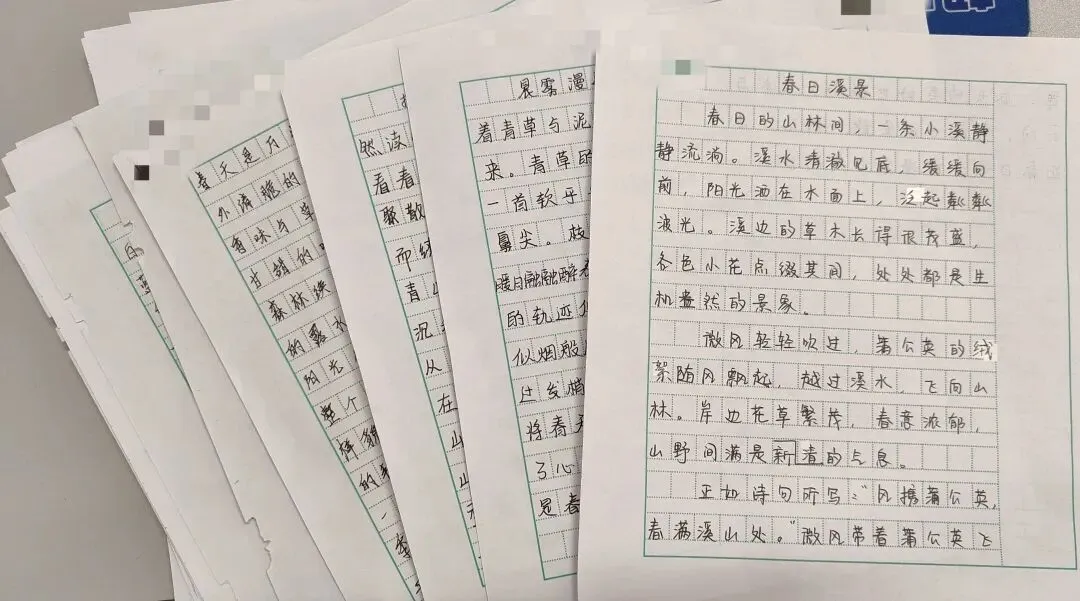 春天是万
外流稳的
香味与草
甘甜的
森林埃
的露水
阳光
整个
伴
的
然读
看着
聚散
而红
青山
沉
从
在
山
山
晨雾漫
着青草与泥
来。青草的
一首软乎
鼻尖。枝
暖日融融醉春
的轨迹
似烟般
过发梢
将春天
了心
冠春
春日溪景
春日的山林间，一条小溪静
静流淌。溪水清澈见底，缓缓向
前，阳光洒在水面上，泛起粼粼
波光。溪边的草木长得很茂盛，
各色小花点缀其间，处处都是生
机盎然的景象。
微风轻轻吹过，蒲公英的绒
絮随风飘起，越过溪水，飞向山
林。岸边花草繁茂，春意浓郁，
山野间满是新春的气息。
正如诗句所写：“风携蒲公英，
春满溪山处。”微风带着蒲公英飞